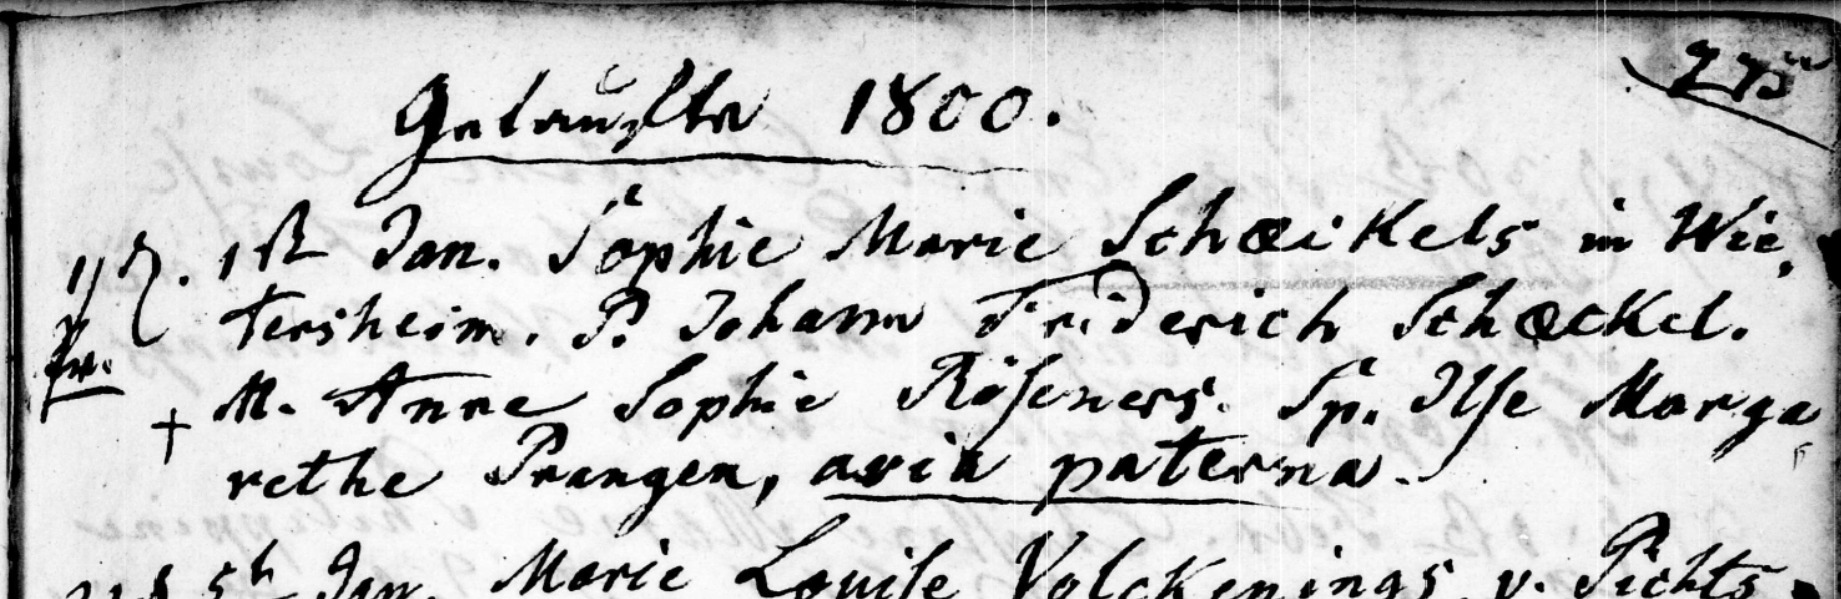 275
Getaufte 1800.
1, 1st Jan. Sophie Marie Schœikels in Wie,
tersheim. P. Johann Friderich Schœckel.
† M. Anne Sophie Röseners. Sp. Ilse Marga,
rethe Prangen, avia paterna.
5t Jan. Marie Louise Volckenings v. Pichts